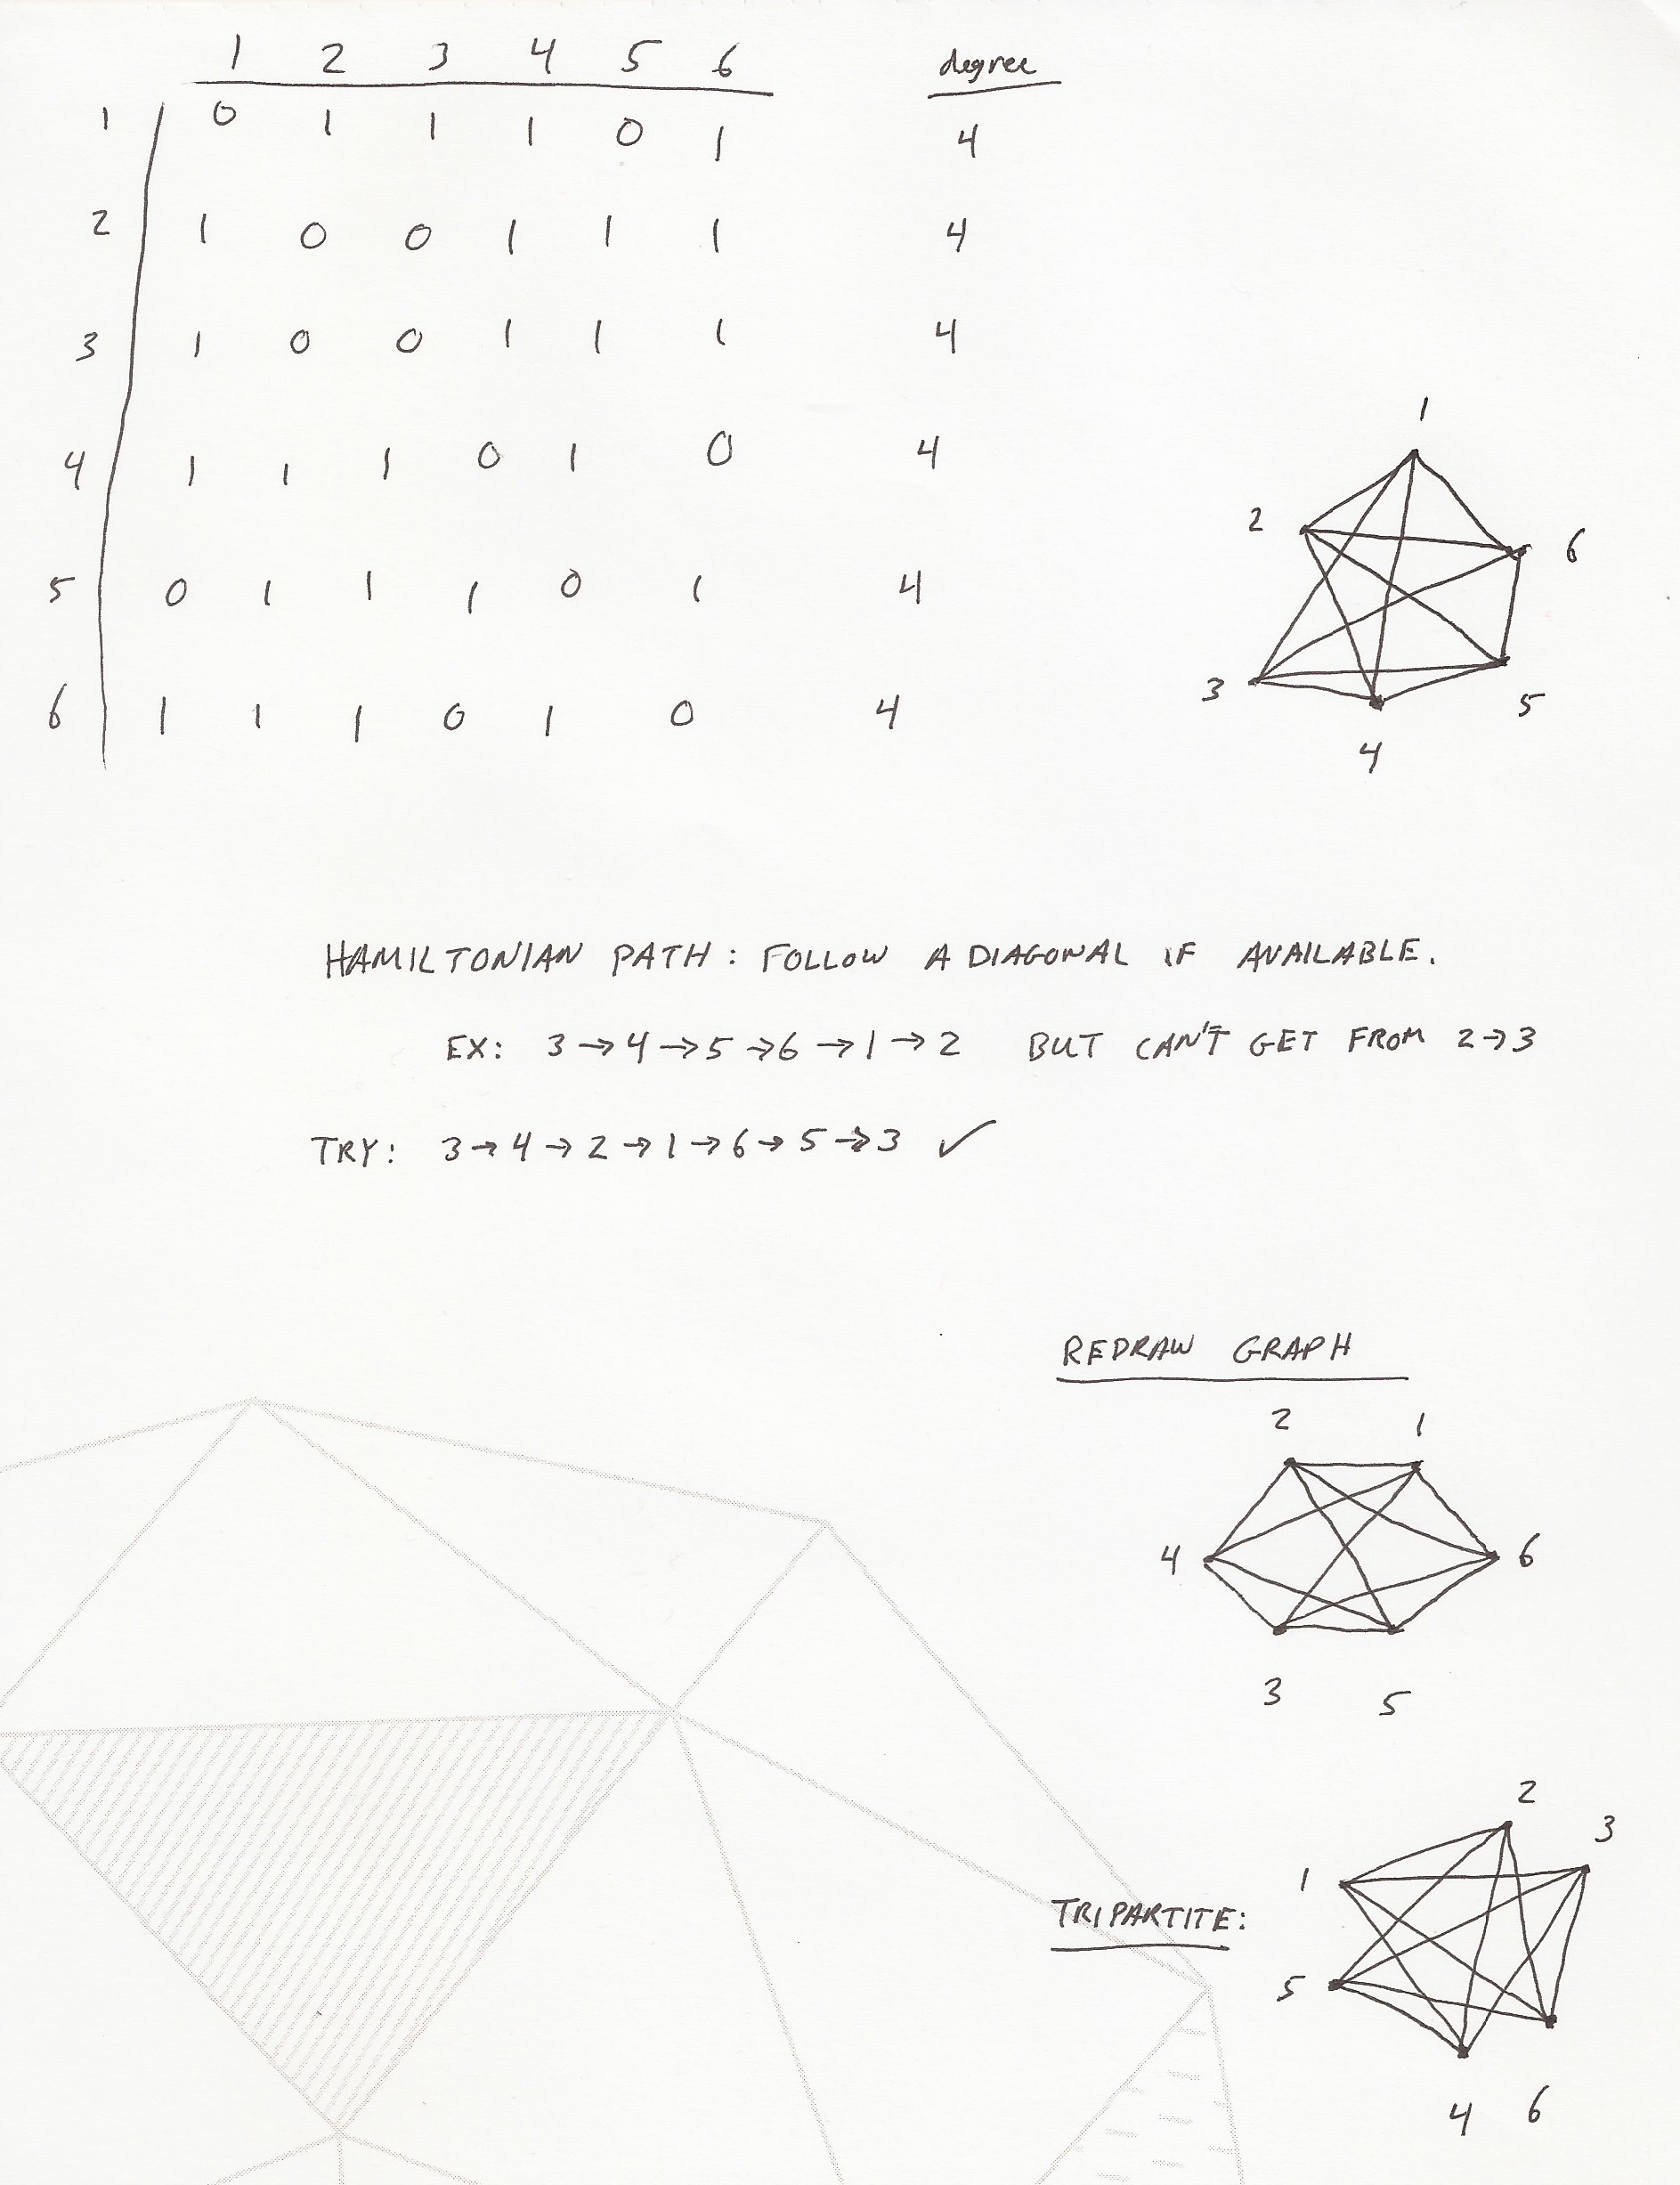 1 2 3 4 5 6 degree
1 0 1 1 1 0 1 4
2 1 0 0 1 1 1 4
3 1 0 0 1 1 1 4
4 1 1 1 0 1 0 4
5 0 1 1 1 0 1 4
6 1 1 1 0 1 0 4
1
2
6
3
5
4
HAMILTONIAN PATH: FOLLOW A DIAGONAL IF AVAILABLE.
EX: 3→4→5→6→1→2 BUT CAN'T GET FROM 2→3
TRY: 3→4→2→1→6→5→3 ✓
REDRAW GRAPH
2 1
4 6
3 5
2
3
1
TRIPARTITE:
5
4 6